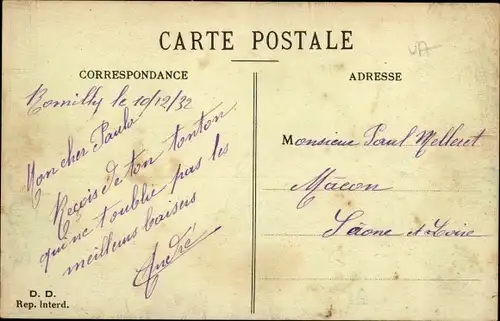 CARTE POSTALE
CORRESPONDANCE
ADRESSE
Romilly le 10/12/32
Mon cher Paulo
Reçois de ton tonton
qui ne t'oublie pas les
meilleurs baisers
André
Monsieur Paul
Mâcon
Sâone et Loire
D. D.
Rep. Interd.